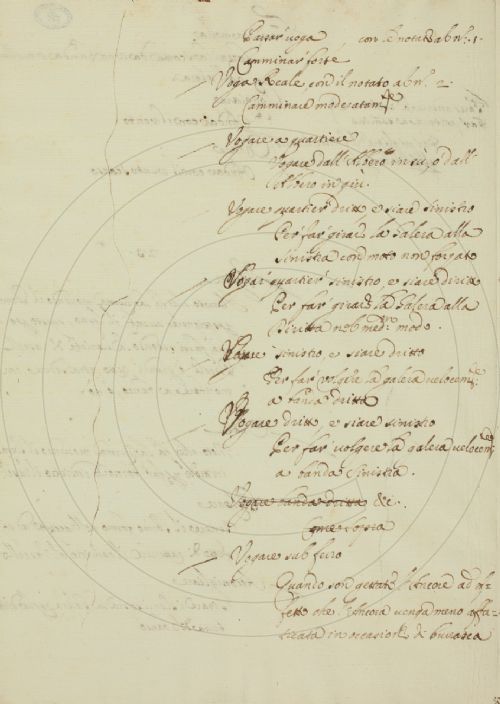 Passar voga con il notato a b nº. 1.
Camminar forte
Voga Reale con il notato a b nº. 2.
Camminare moderatamte
Vogare a quartiere
Vogare dall'Albero in sù, o dall'
Albero in giù.
Vogare quartier dritto e siare sinistro
Per far girare la Galera alla
sinistra con moto non forzato
Vogar quartier sinistro, e siare dritto
Per far girare la Galera alla
Diritta nel medmo modo.
Vogare sinistro, e siare dritto
Per far volgere la galera velocemte
a banda dritta
Vogare dritto, e siare sinistro
Per far volgere la galera velocemte
a banda sinistra.
Vogare banda dritta &c.
come sopra
Vogare sub ferro
Quando sono gettate l'Ancore ad ef-
fetto che l'Ancora venga meno affa-
ticata in occasione di burrasca